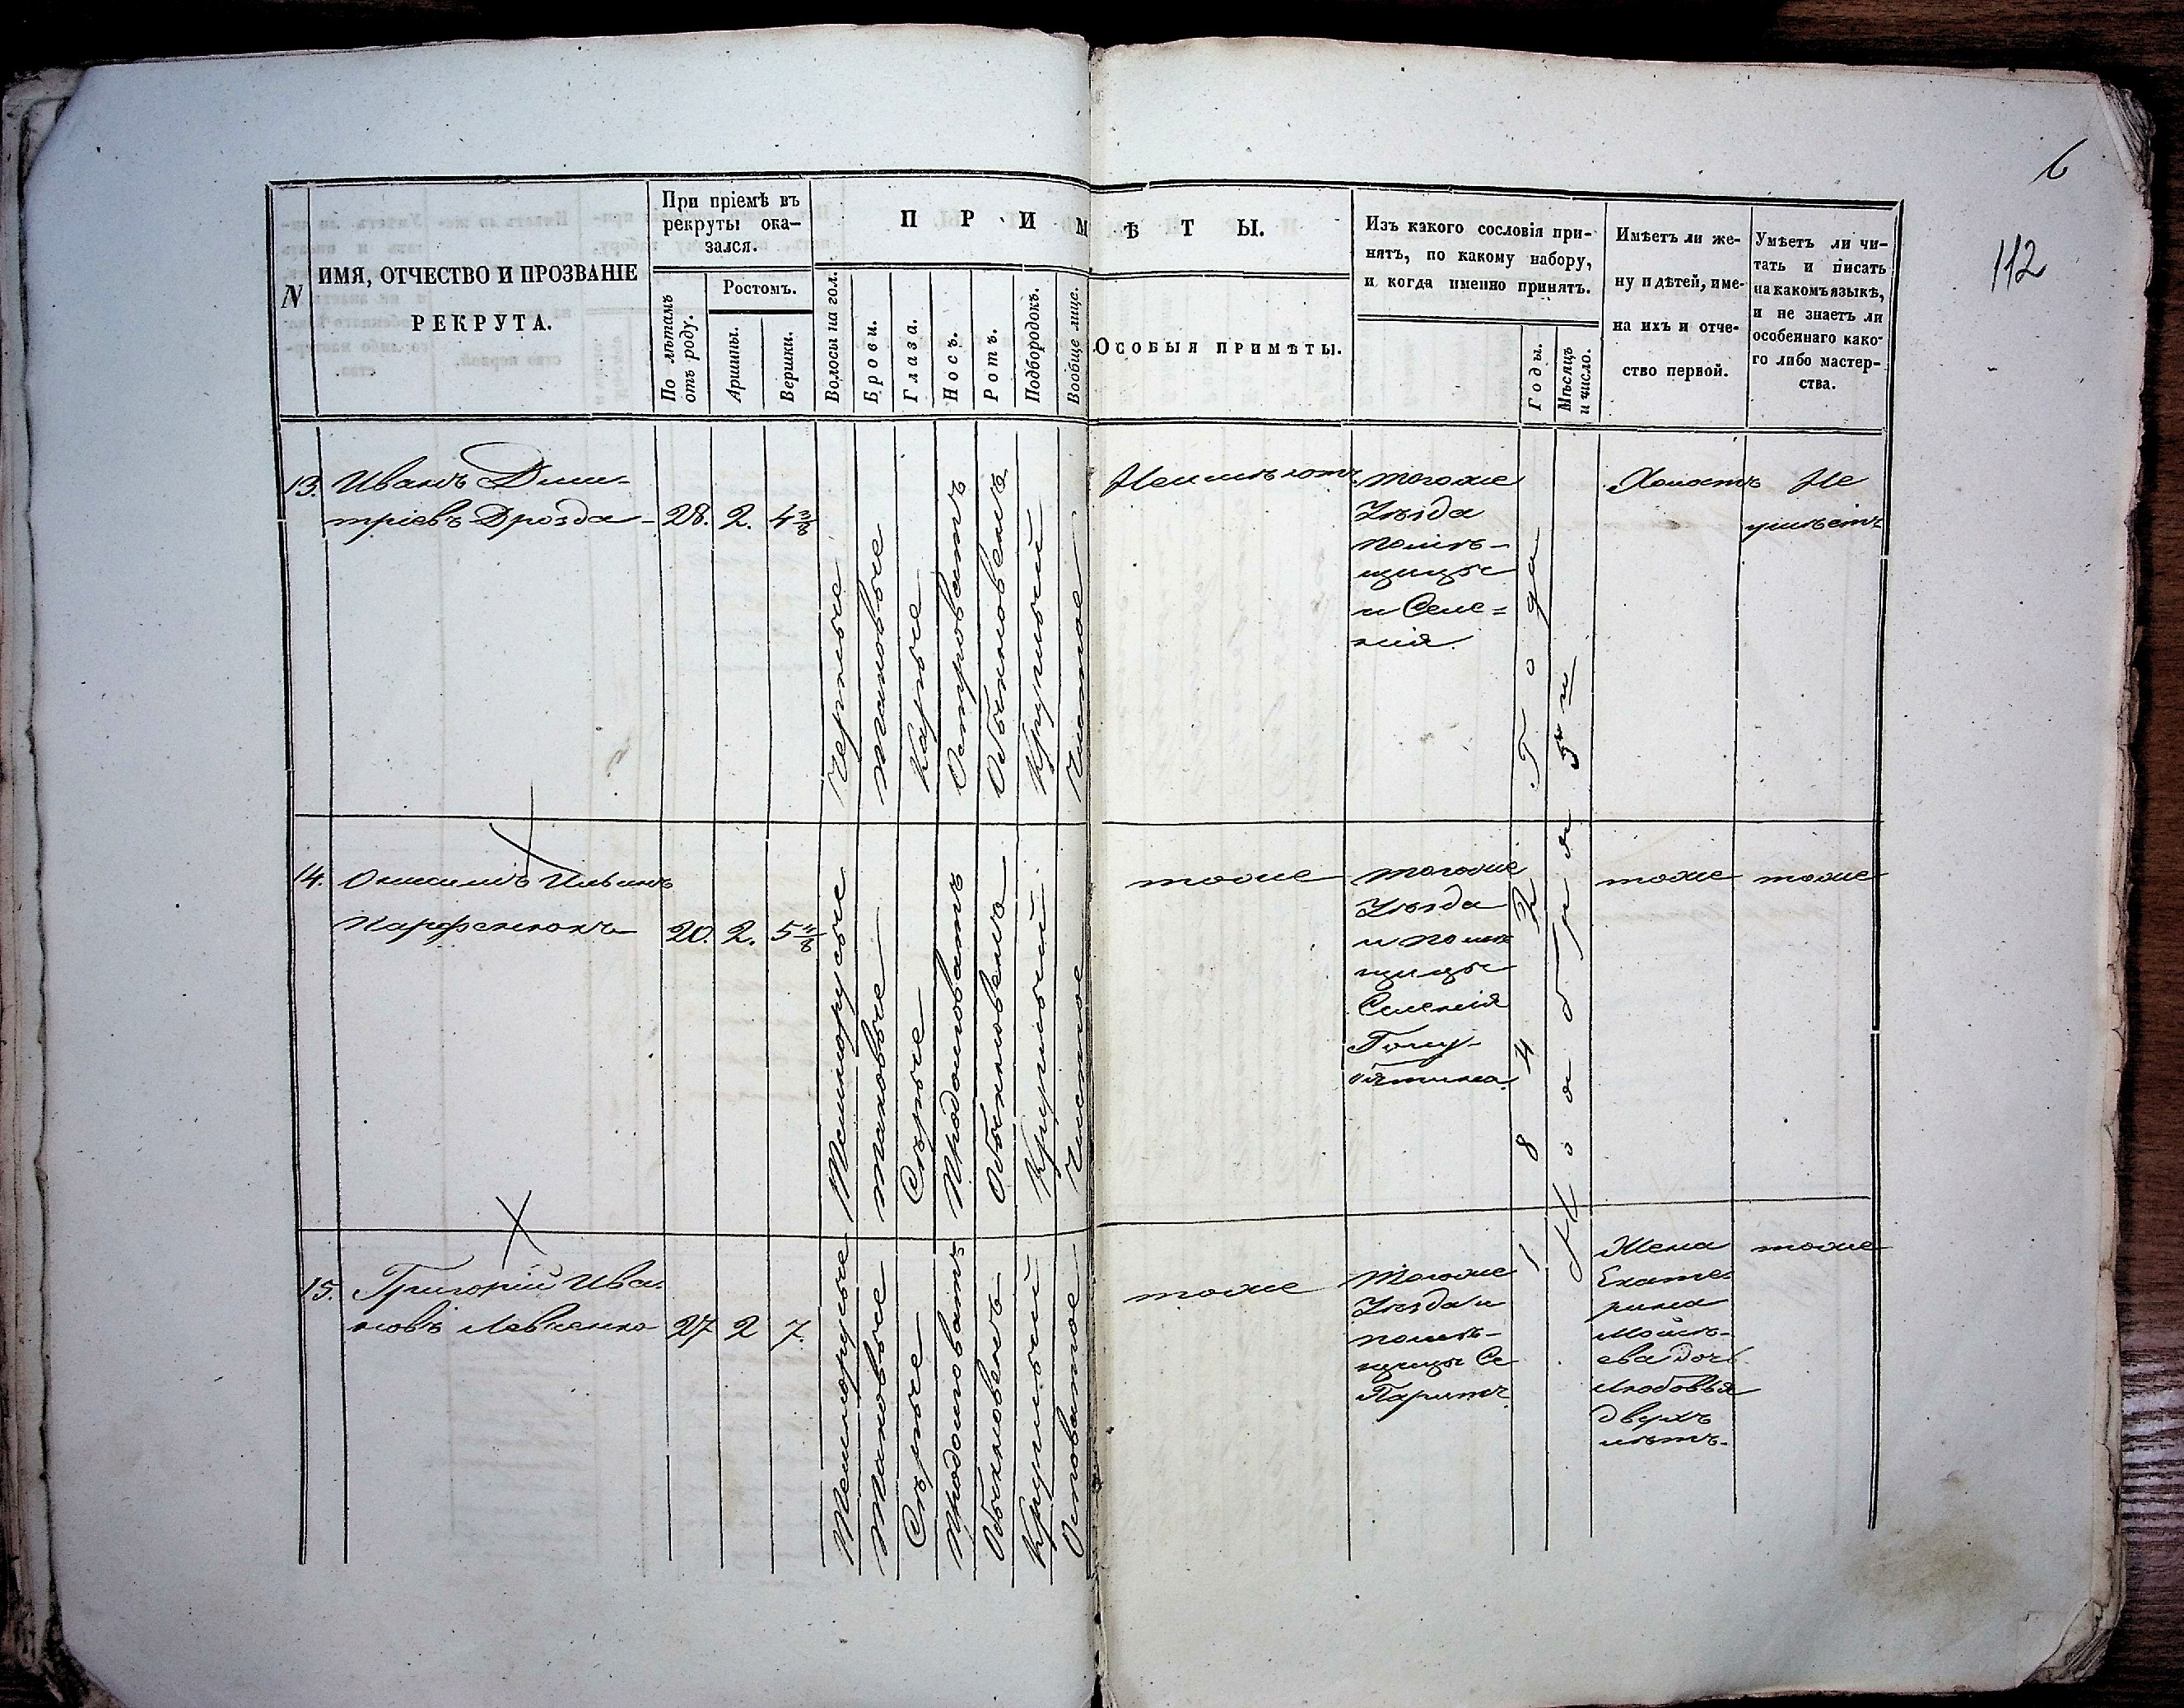 6
112
N
ИМЯ, ОТЧЕСТВО И ПРОЗВАНІЕ
РЕКРУТА.
При пріемѣ въ
рекруты ока-
зался.
По лѣтамъ
отъ роду.
Ростомъ.
Аршины.
Вершки.
ПРИМѢТЫ.
Волосы на гол.
Брови.
Глаза.
Носъ.
Ротъ.
Подбородокъ.
Вообще лице.
Особыя примѣты.
Изъ какого сословія при-
нятъ, по какому набору,
и когда именно принятъ.
Годы.
Мѣсяцъ
и число.
Имѣетъ ли же-
ну и дѣтей, име-
на ихъ и отче-
ство первой.
Умѣетъ ли чи-
тать и писать
на какомъ языкѣ,
и не знаетъ ли
особеннаго како-
го либо мастер-
ства.
13. Иванъ Дми-
тріевъ Дрозда
28. 2. 4 3/8
Черные
таковые
Карые
Островатъ
Обыкновенъ
Круглый
Чистое
Неимѣютъ
тогоже
Уѣзда
помѣ-
щицы
и Селе=
нія.
1842 Года
Ноября 5го
Холостъ
Не
умѣетъ
14. Онисимъ Ильинъ
Парфенюкъ
20. 2. 5 4/8
Темнорусые
таковые
Сѣрые
Продолговатъ
Обыкновенъ
Круглый
Чистое
тоже
тогоже
Уѣзда
и помѣ
щицы
Селенія
тоже
тоже
15. Григорій Ива-
новъ Левченко
27 2 7.
Темнорусые
Таковые
Сѣрые
Продолговатъ
Обыкновенъ
Круглый
Осповатое
тоже
Тогоже
Уѣзда и
помѣ-
щицы Се
Жена
Екате-
рина
Моисѣ-
ева дочь
Любовья
двухъ
лѣтъ.
тоже